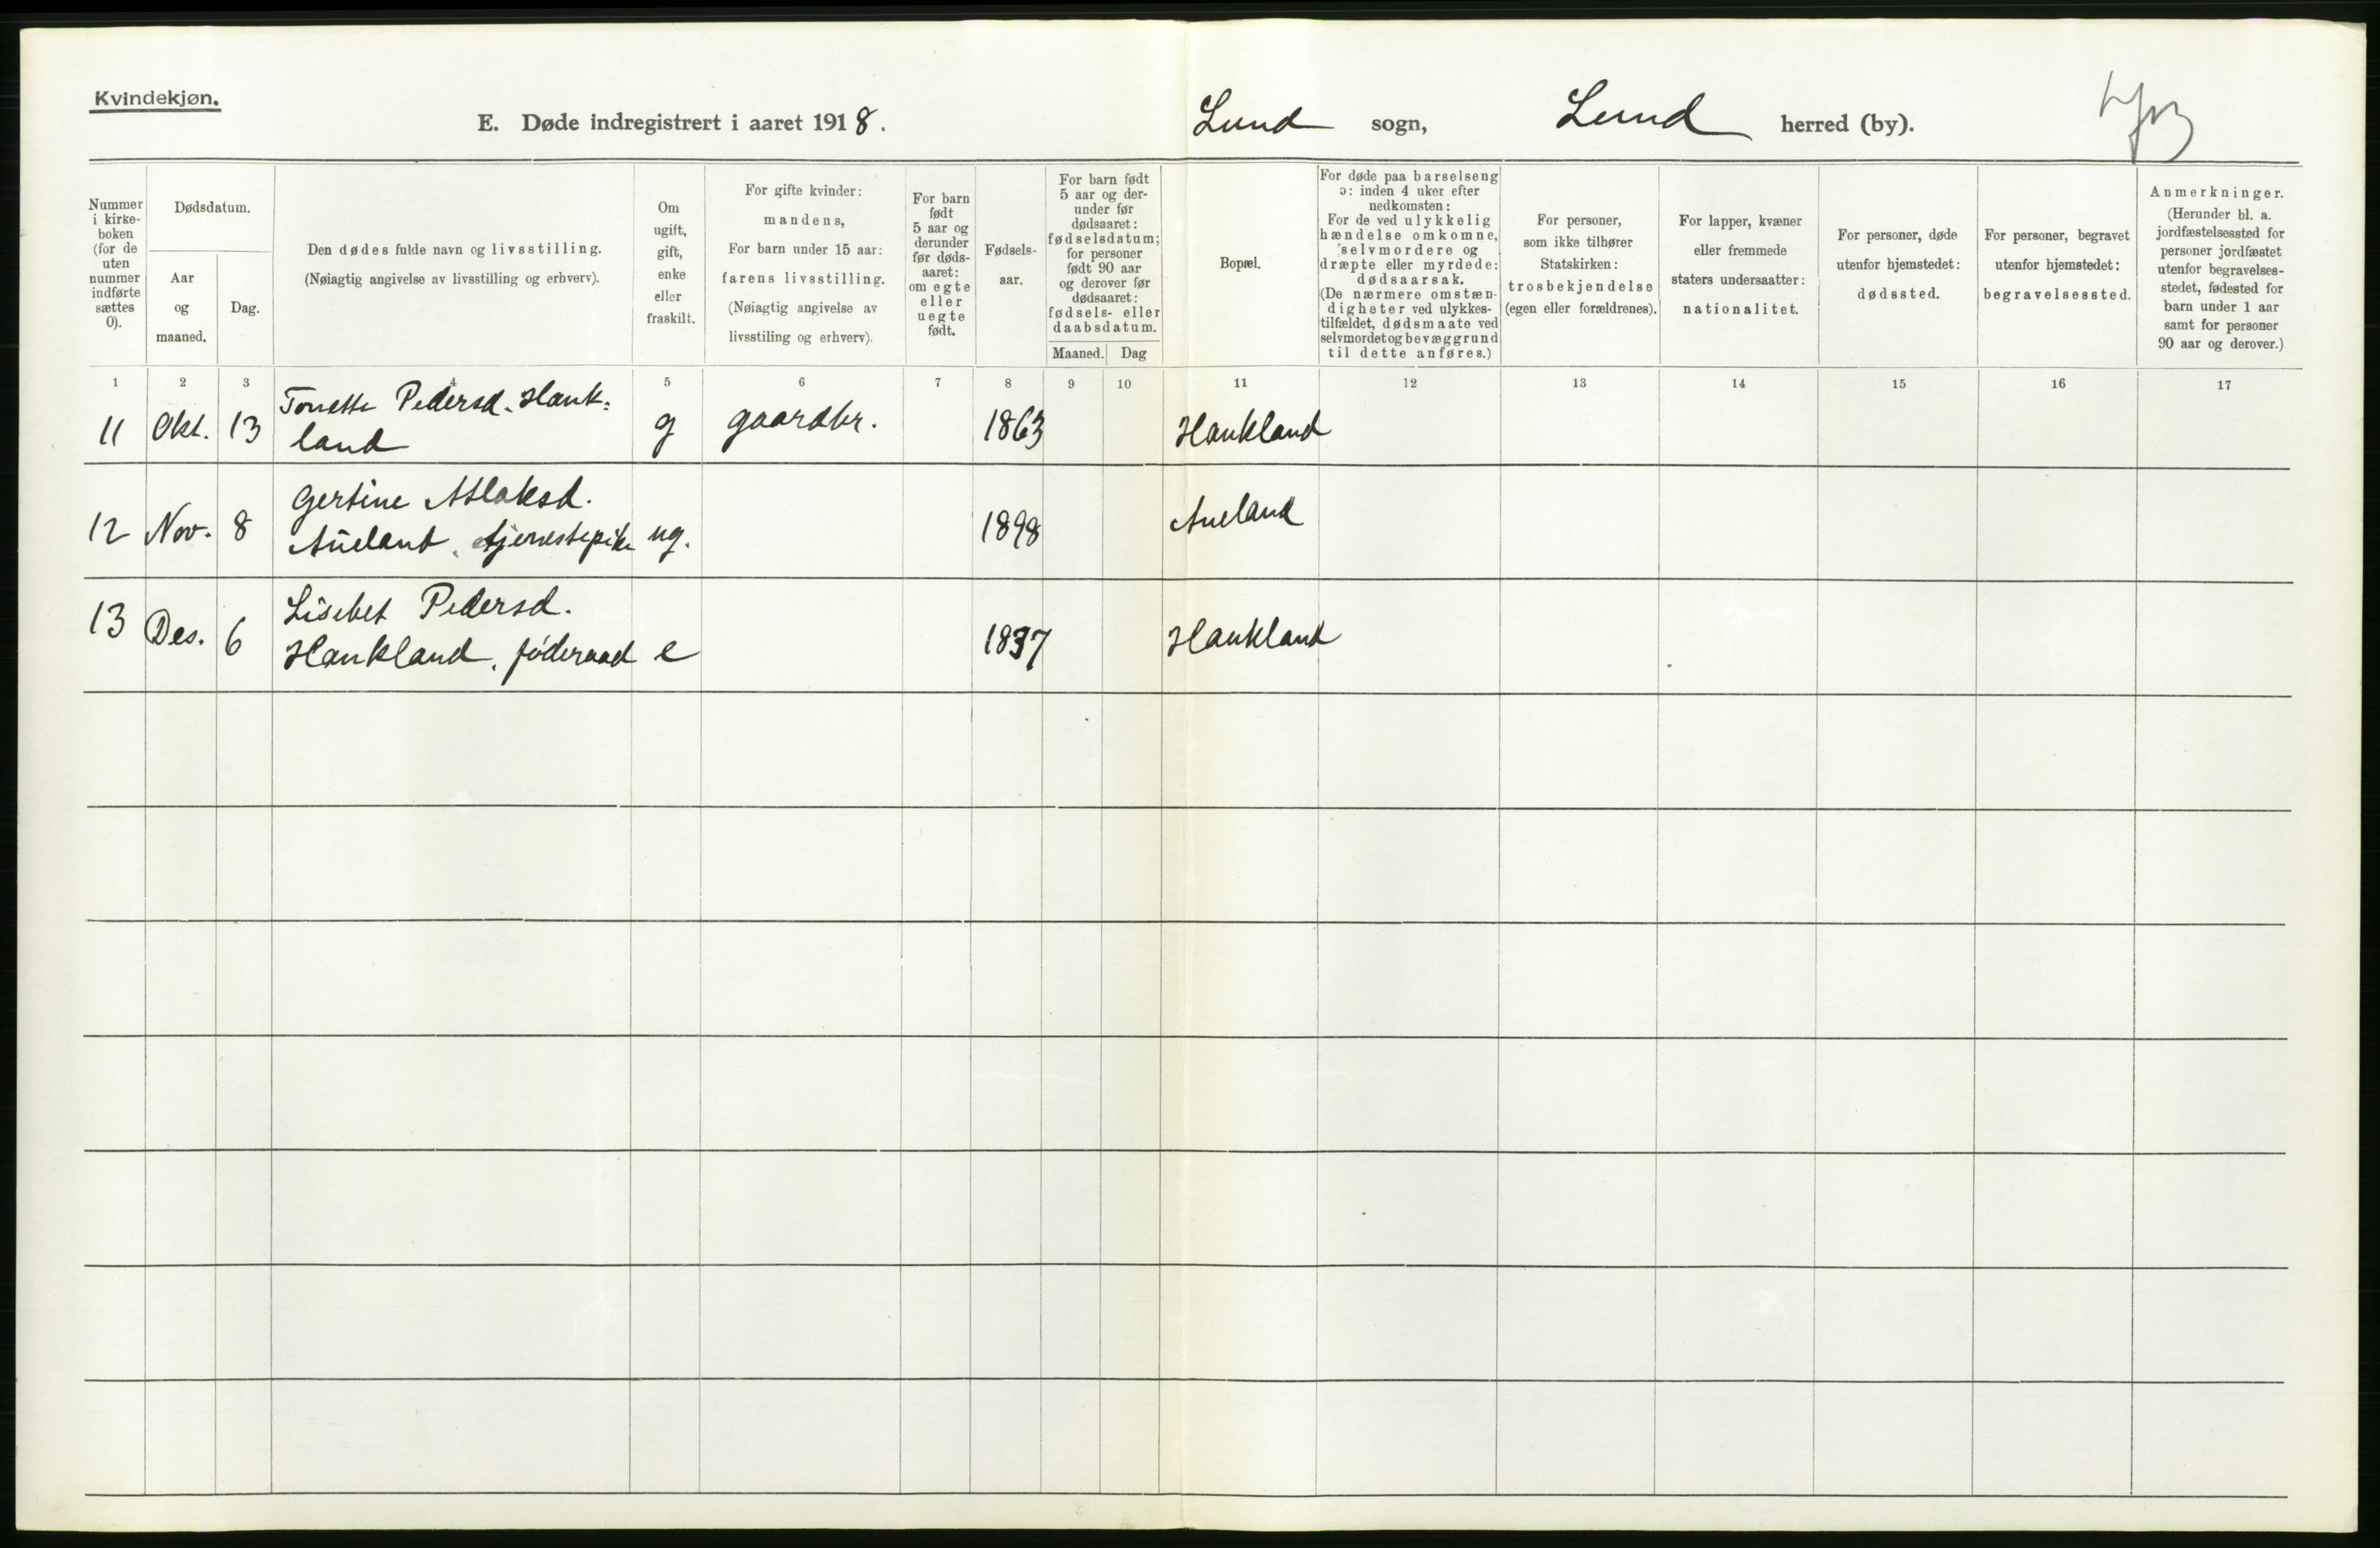 Kvindekjøn.
E. Døde indregistrert i aaret 1918.
Lund sogn, Lund herred (by).
Nummer i kirke-boken (for de uten nummer indførte sættes 0).
Dødsdatum.
Aar og maaned.
Dag.
Den dødes fulde navn og livsstilling.
(Nøiagtig angivelse av livsstilling og erhverv).
Om ugift, gift, enke eller fraskilt.
For gifte kvinder:
mandens,
For barn under 15 aar:
farens livsstilling.
(Nøiagtig angivelse av livsstiling og erhverv).
For barn født 5 aar og derunder før døds-aaret: om egte eller uegte født.
Fødsels-aar.
For barn født 5 aar og der-under før dødsaaret: fødselsdatum; for personer født 90 aar og derover før dødsaaret: fødsels- eller daabsdatum.
Maaned. Dag
Bopæl.
For døde paa barselseng ɔ: inden 4 uker efter nedkomsten:
For de ved ulykkelig hændelse omkomne, selvmordere og dræpte eller myrdede: dødsaarsak.
(De nærmere omstæn-digheter ved ulykkes-tilfældet, dødsmaate ved selvmordet og bevæggrund til dette anføres.)
For personer, som ikke tilhører Statskirken: trosbekjendelse (egen eller forældrenes).
For lapper, kvæner eller fremmede staters undersaatter: nationalitet.
For personer, døde utenfor hjemstedet: dødssted.
For personer, begravet utenfor hjemstedet: begravelsessted.
Anmerkninger.
(Herunder bl. a. jordfæstelsessted for personer jordfæstet utenfor begravelses-stedet, fødested for barn under 1 aar samt for personer 90 aar og derover.)
1 2 3 4 5 6 7 8 9 10 11 12 13 14 15 16 17
11 Okt. 13 Tonette Pedersd. Hauk-
land g gaardbr. 1863 Haukland
12 Nov. 8 Gertine Atlaksd.
Aueland, tjenestepike ug. 1898 Aueland
13 Des. 6 Lisebet Pedersd.
Haukland, føderaad e 1837 Haukland